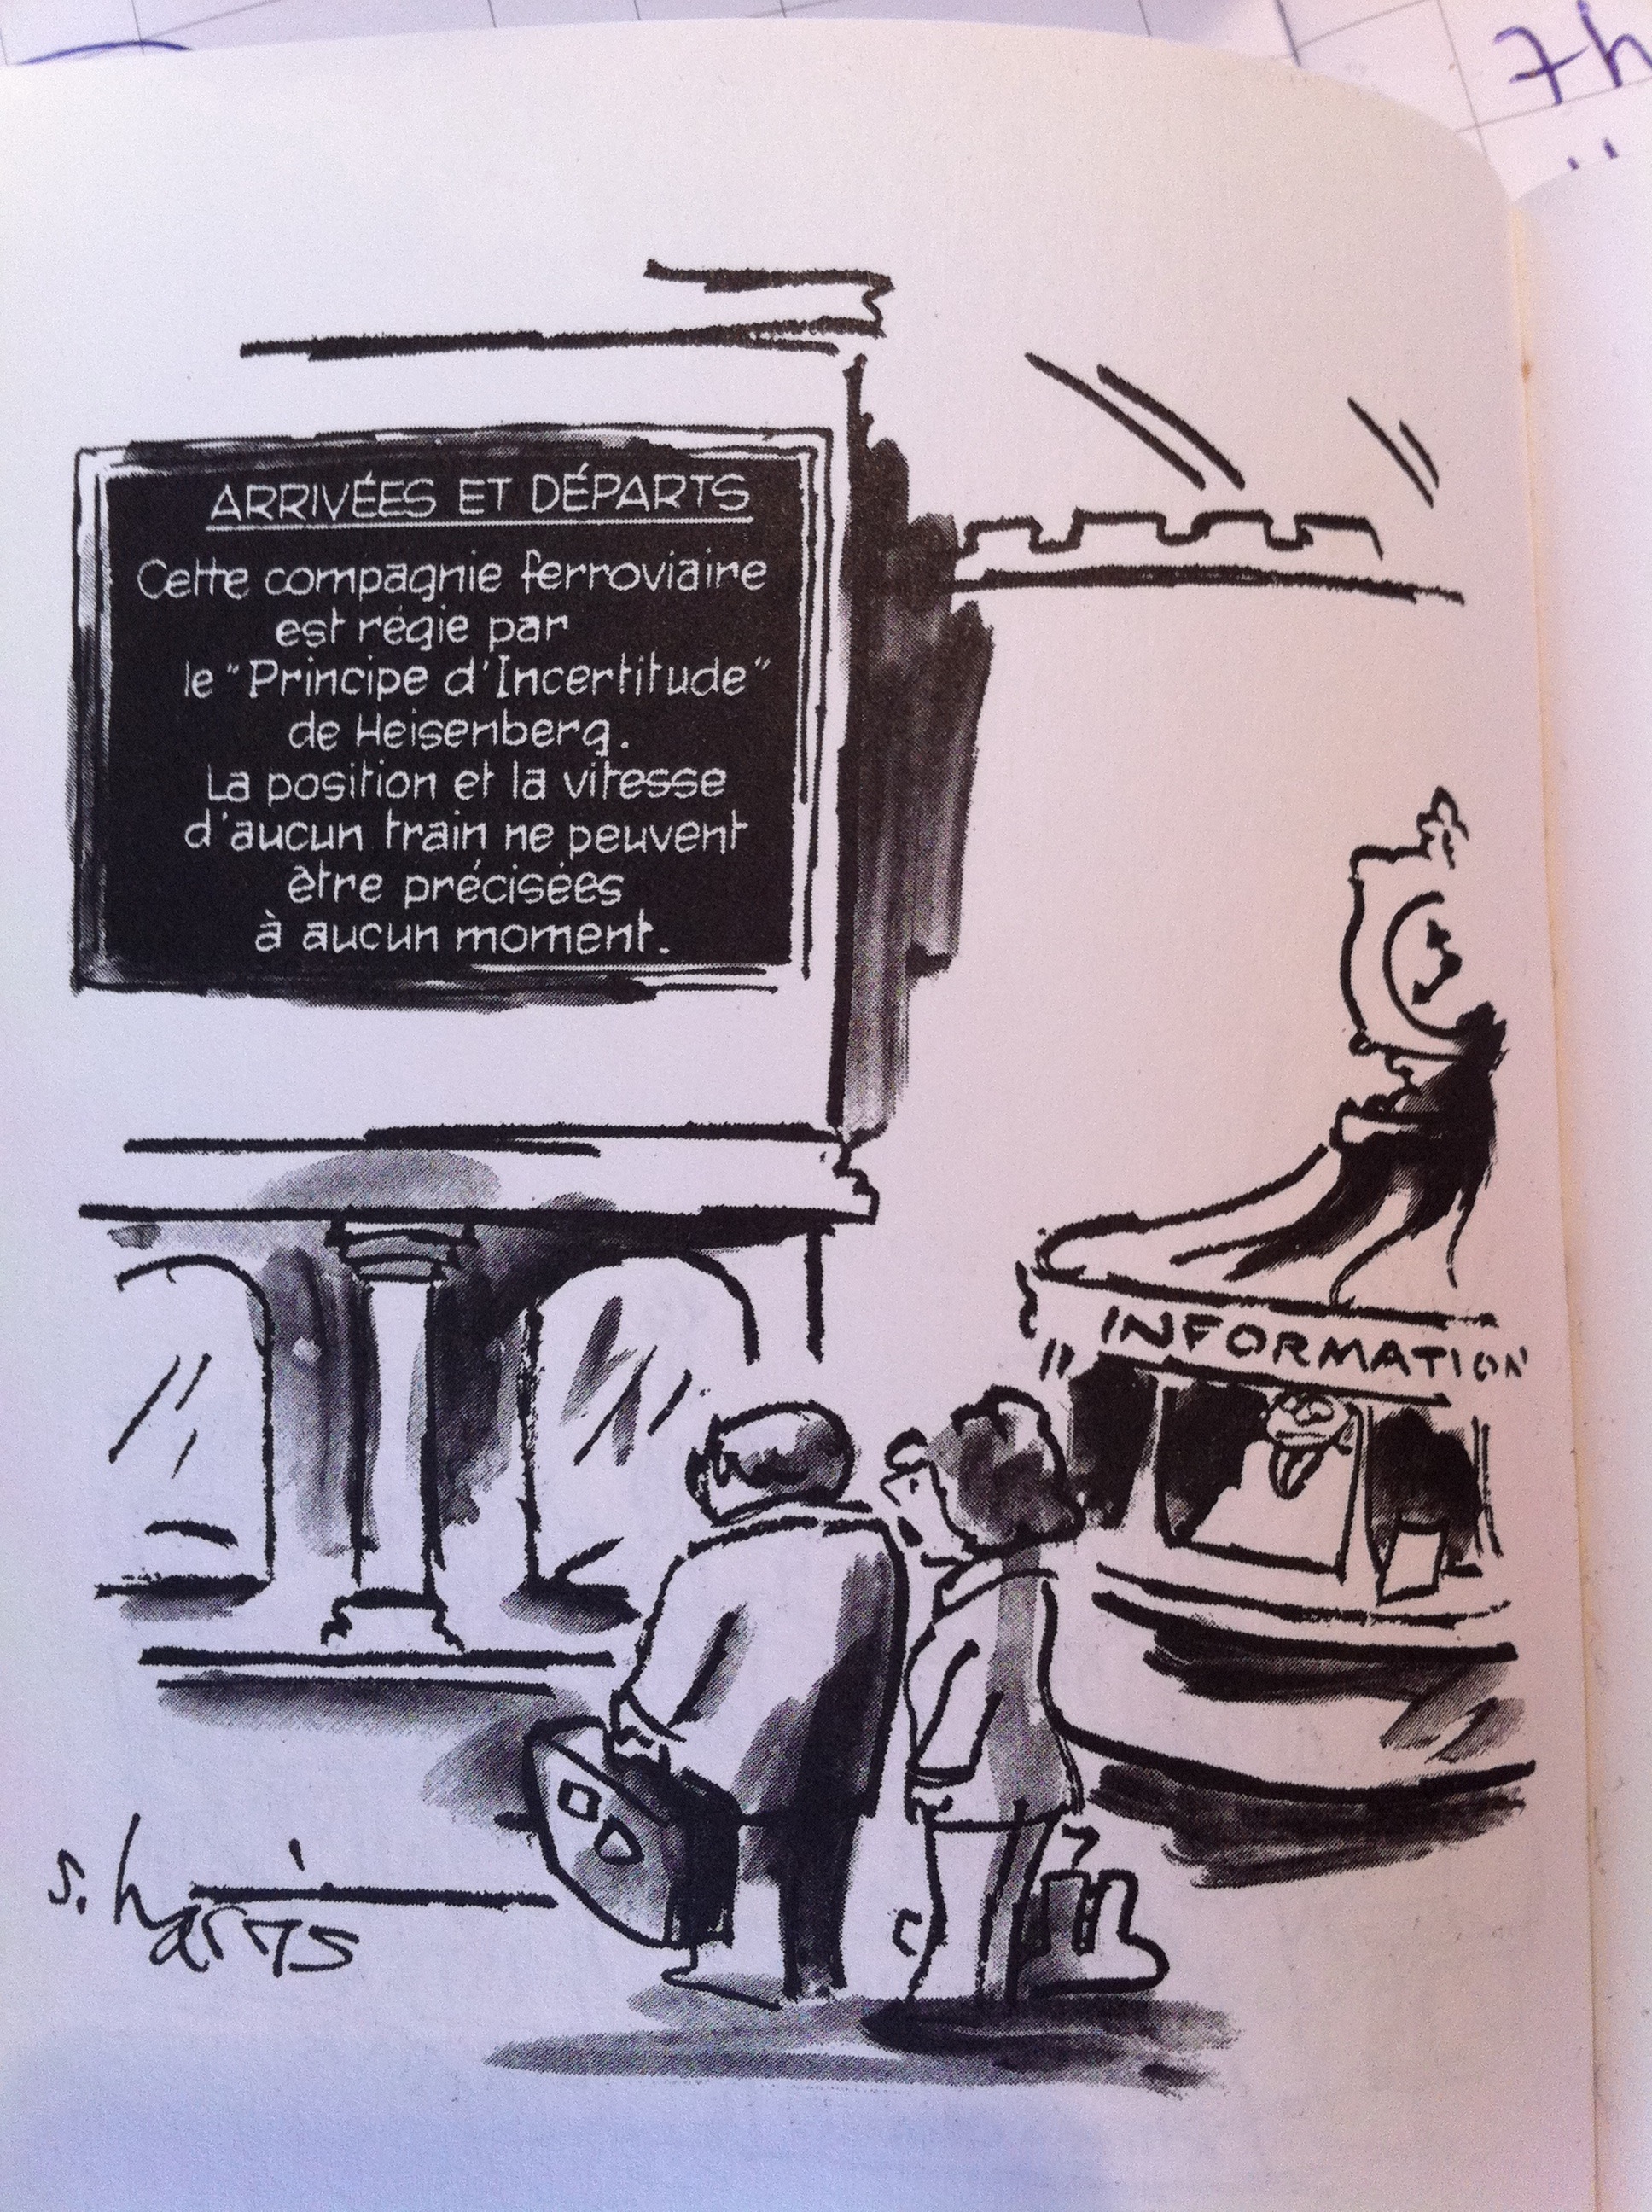 7h
ARRIVÉES ET DÉPARTS
Cette compagnie ferroviaire
est régie par
le "Principe d'Incertitude"
de Heisenberg.
La position et la vitesse
d'aucun train ne peuvent
être précisées
à aucun moment.
INFORMATION
s. harris